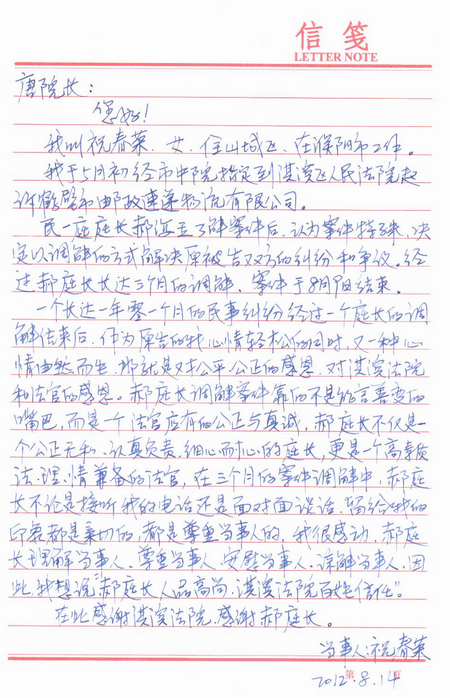 信笺
LETTER NOTE
唐院长：
您好！
我叫祝春荣、女、住山城区、在濮阳市工作。
我于5月初经市中院指定到淇滨区人民法院起
诉鹤壁市邮政速递物流有限公司。
民一庭庭长郝海玉了解案件后，认为案件特殊，决
定以调解的方式解决原被告双方的纠纷和争议。经
过郝庭长长达三个月的调解，案件于8月9日结束。
一个长达一年零一个月的民事纠纷经过一个庭长的调
解结束后，作为原告的我心情轻松的同时，又一种心
情油然而生，那就是对公平公正的感恩，对淇滨法院
和法官的感恩。郝庭长调解案件靠的不是能言善变的
嘴巴，而是一个法官应有的公正与真诚，郝庭长不仅是一
个公正无私、认真负责、细心而耐心的庭长，更是一个高素质
法、理、情兼备的法官，在三个月的案件调解中，郝庭
长不论是接听我的电话还是面对面谈话，留给我的
印象都是亲切的，都是尊重当事人的，我很感动，郝庭
长理解当事人、尊重当事人、安慰当事人、谅解当事人，因
此，我想说“郝庭长人品高尚，淇滨法院百姓信任”。
在此感谢淇滨法院，感谢郝庭长。
当事人：祝春荣
2012.8.14